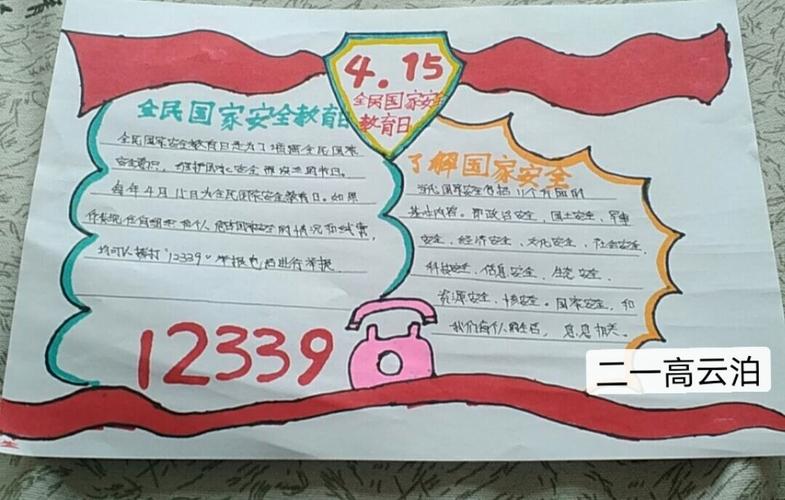 4.15
全民国家安全
教育日
全民国家安全教育日
全民国家安全教育日是为了增强全民国家
安全意识，维护国家安全而设立的节日。
每年4月15日为全民国家安全教育日。如果
你发现任何组织和个人危害国家安全的情况和线索，
均可以拨打“12339”举报电话进行举报
12339
了解国家安全
当代国家安全包括11个方面的
基本内容。即政治安全、国土安全、军事
安全、经济安全、文化安全、社会安全、
科技安全、信息安全、生态安全、
资源安全、核安全。国家安全，和
我们每个人的生活，息息相关。
二一高云泊